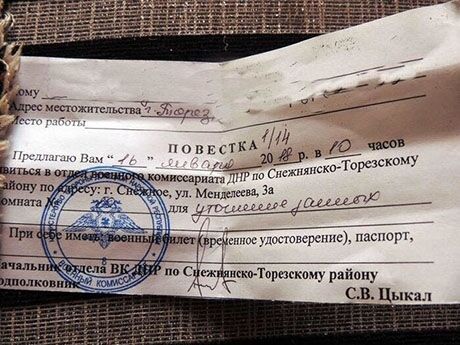 ому
Адрес местожительства г. Торез
Место работы
ПОВЕСТКА 1/14
Предлагаю Вам "16" января 2018 г. в 10 часов
явиться в отдел военного комиссариата ДНР по Снежнянско-Торезскому
району по адресу: г. Снежное, ул. Менделеева, 3а
омната № для уточнение данных
При себе иметь военный билет (временное удостоверение), паспорт,
Начальник отдела ВК ДНР по Снежнянско-Торезскому району
одполковник С.В. Цыкал
ВОЕННЫЙ КОМИССАРИАТ